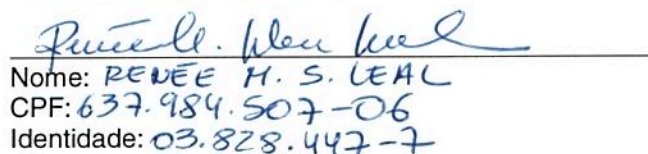 Nome: RENÉE M. S. LEAL
CPF: 637.984.507-06
Identidade: 03.828.447-7